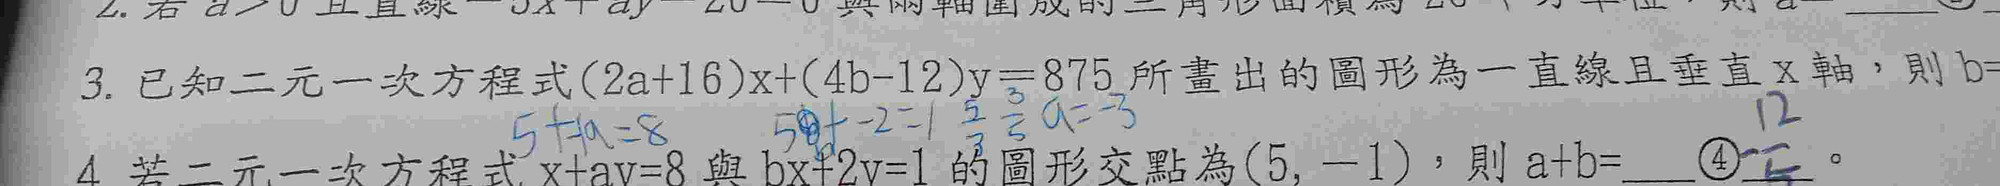 2. 若 a>0 且直線-5x+ay-20=0 與兩軸圍成的三角形面積為 20 平方單位,則 a=
3. 已知二元一次方程式(2a+16)x+(4b-12)y=875 所畫出的圖形為一直線且垂直 x 軸,則 b=
5+-1a=8 -2=1 a=-3 12
4 若二元一次方程式 x+ay=8 與 bx+2y=1 的圖形交點為(5, -1),則 a+b=___④-___。